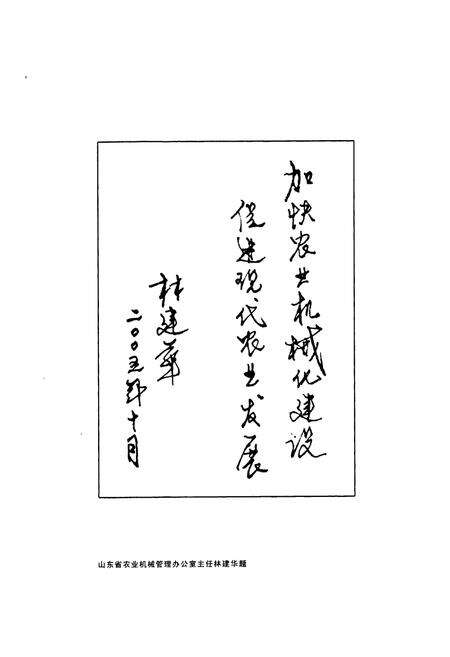 加快农业机械化建设
促进现代农业发展
林建华
二〇〇五年十月
山东省农业机械管理办公室主任林建华题